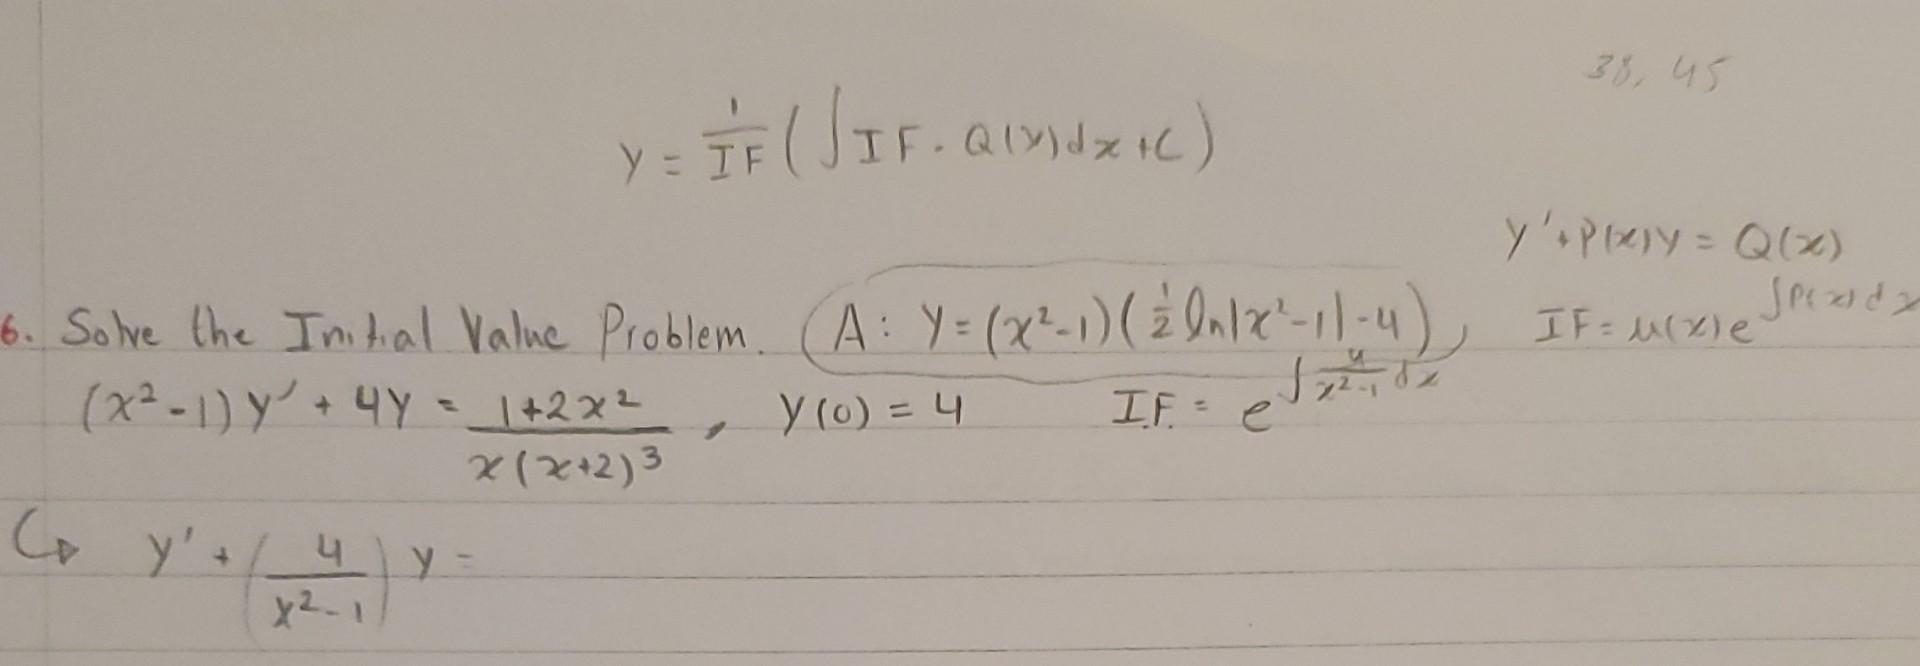 38, 45
y = 1/IF ( ∫ IF · Q(x)dx + C )
y' + P(x)y = Q(x)
6. Solve the Initial Value Problem. A: y = (x²-1)(½ ln|x²-1| - 4) IF = u(x)e^∫P(x)dx
(x²-1)y' + 4y = (1+2x²)/(x(x+2)³), y(0) = 4 I.F. = e^∫ 4/(x²-1) dx
↳ y' + (4/(x²-1)) y =